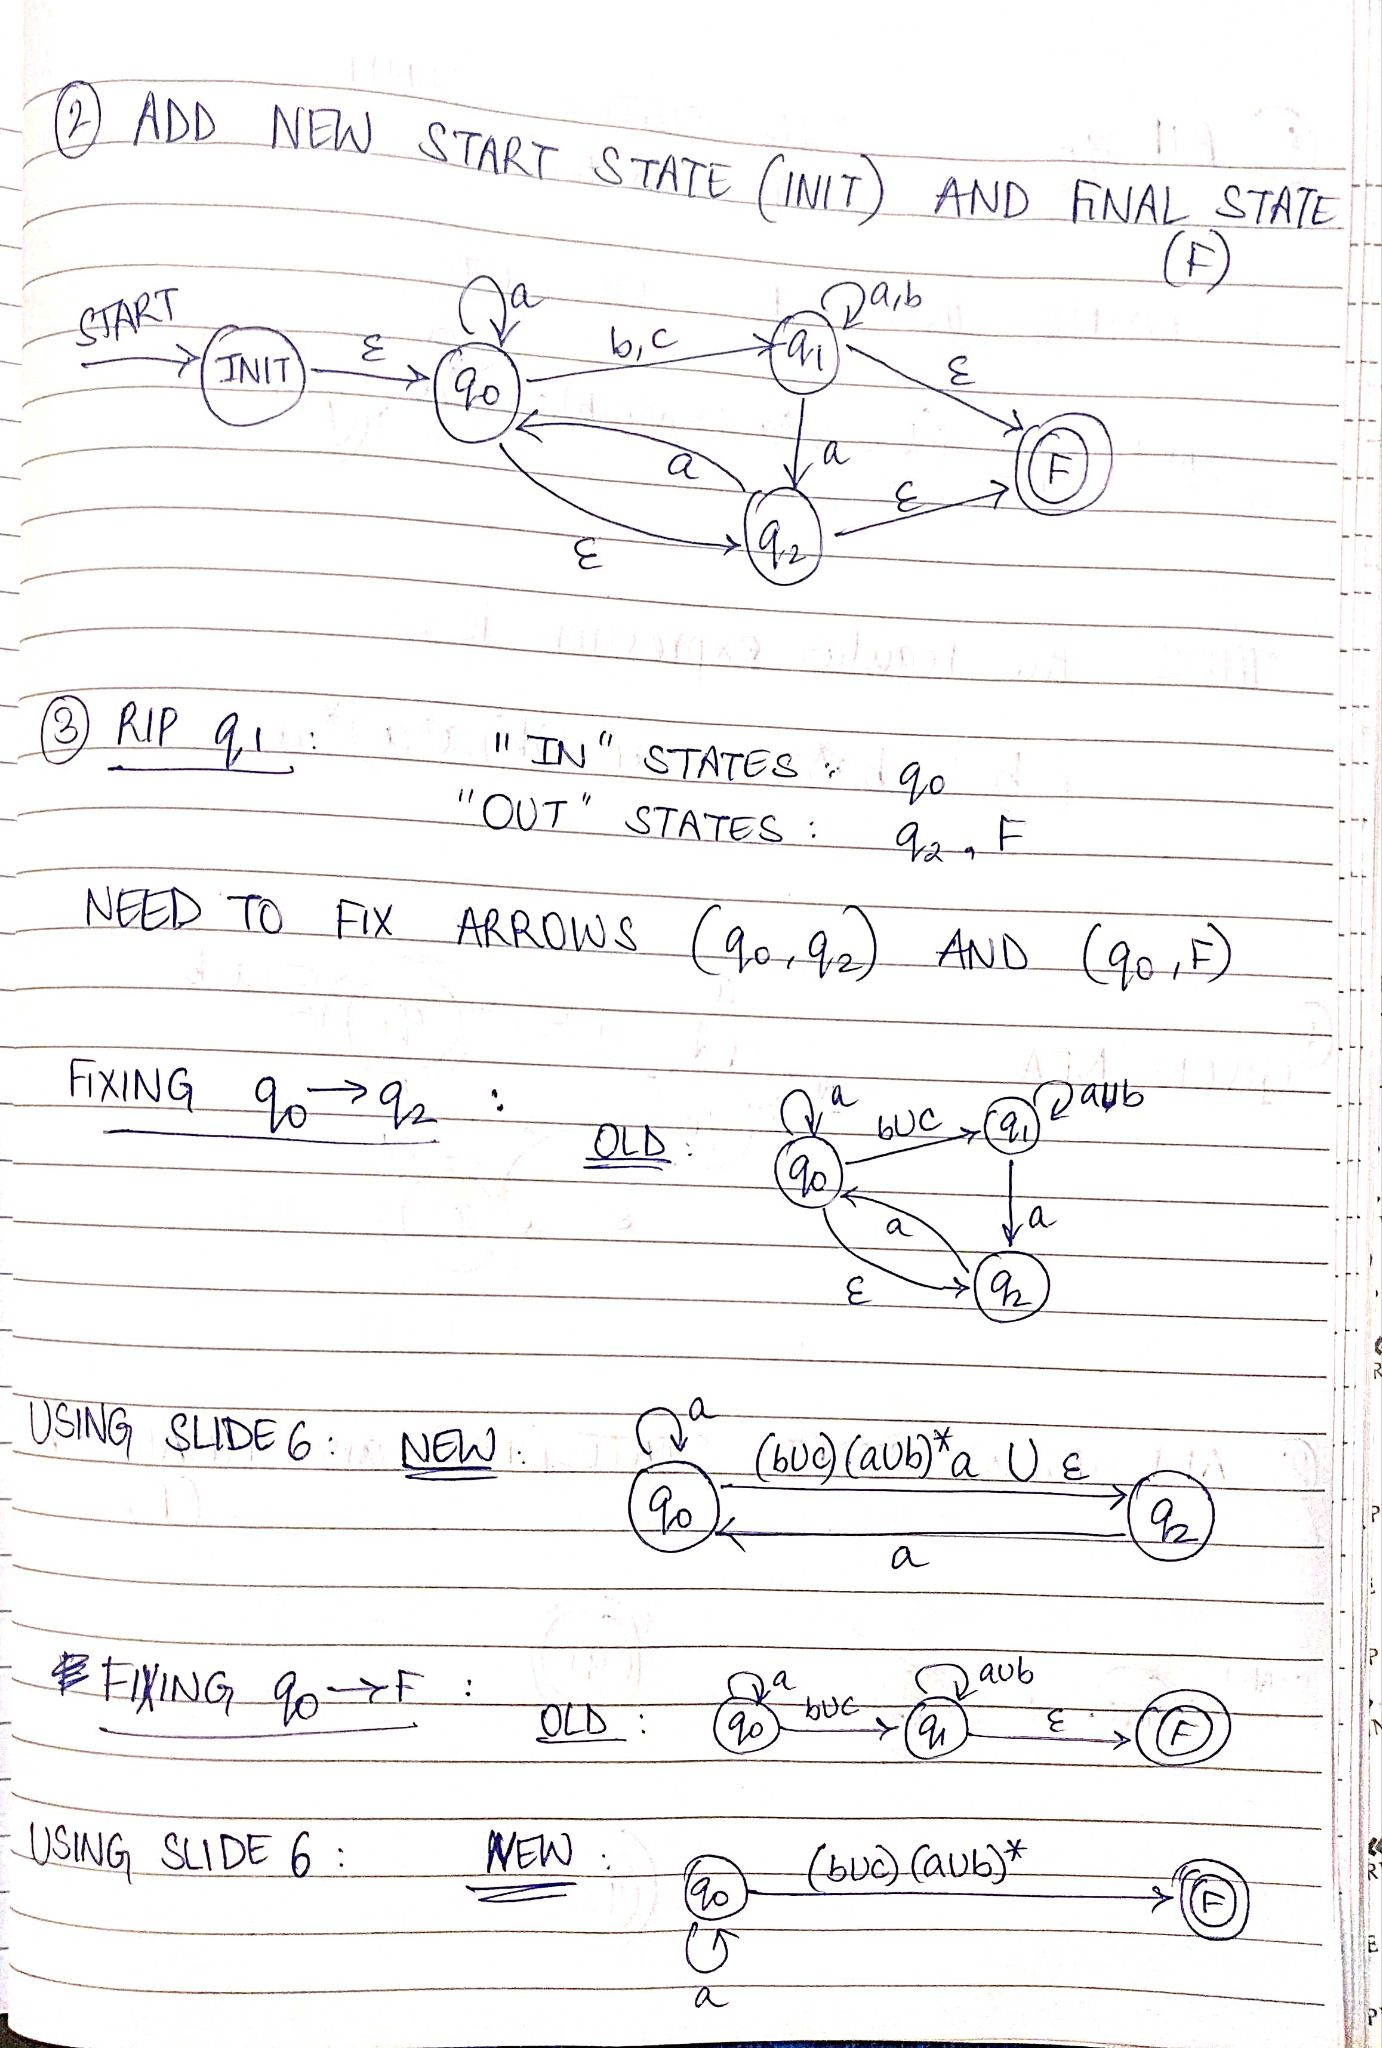 ② ADD NEW START STATE (INIT) AND FINAL STATE
(F)
START
INIT
ε
q0
a
b,c
q1
a,b
ε
F
a
a
ε
q2
ε
③ RIP q1 : "IN" STATES : q0
"OUT" STATES : q2, F
NEED TO FIX ARROWS (q0, q2) AND (q0, F)
FIXING q0 → q2 :
OLD :
a
q0
bUc
q1
aUb
a
a
ε
q2
USING SLIDE 6 : NEW :
a
q0
(bUc)(aUb)*a U ε
q2
a
FIXING q0 → F :
OLD :
a
q0
bUc
q1
aUb
ε
F
USING SLIDE 6 : NEW :
q0
(bUc)(aUb)*
F
a